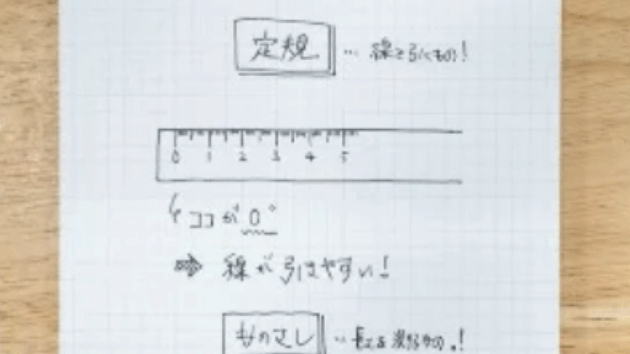 定規 … 線を引くもの!
0 1 2 3 4 5
ココが 0
⇒ 線が引きやすい!
ものさし … 長さを測るもの。!